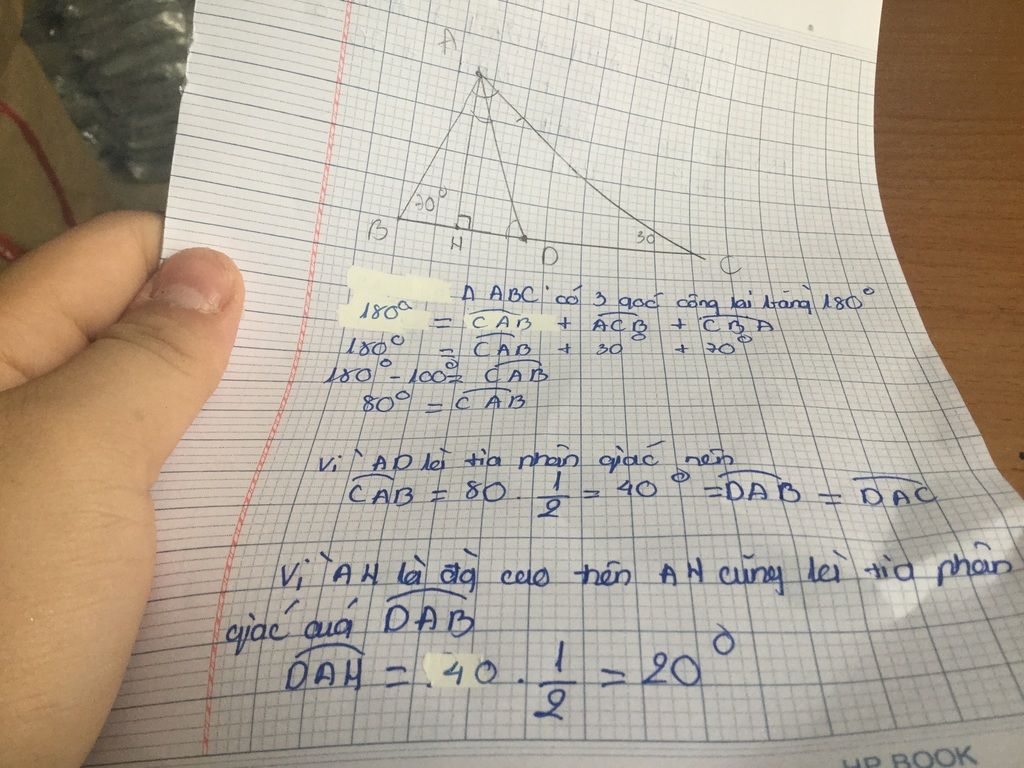 A
B
70°
H
D
30
C
Δ ABC có 3 góc cộng lại bằng 180°
180° = CAB + ACB + CBA
180° = CAB + 30° + 70°
180° - 100° = CAB
80° = CAB
Vì AD là tia phân giác nên
CAB = 80 . 1/2 = 40° = DAB = DAC
Vì AH là đg cao nên AH cũng là tia phân
giác quá DAB
DAH = 40 . 1/2 = 20°
HP BOOK